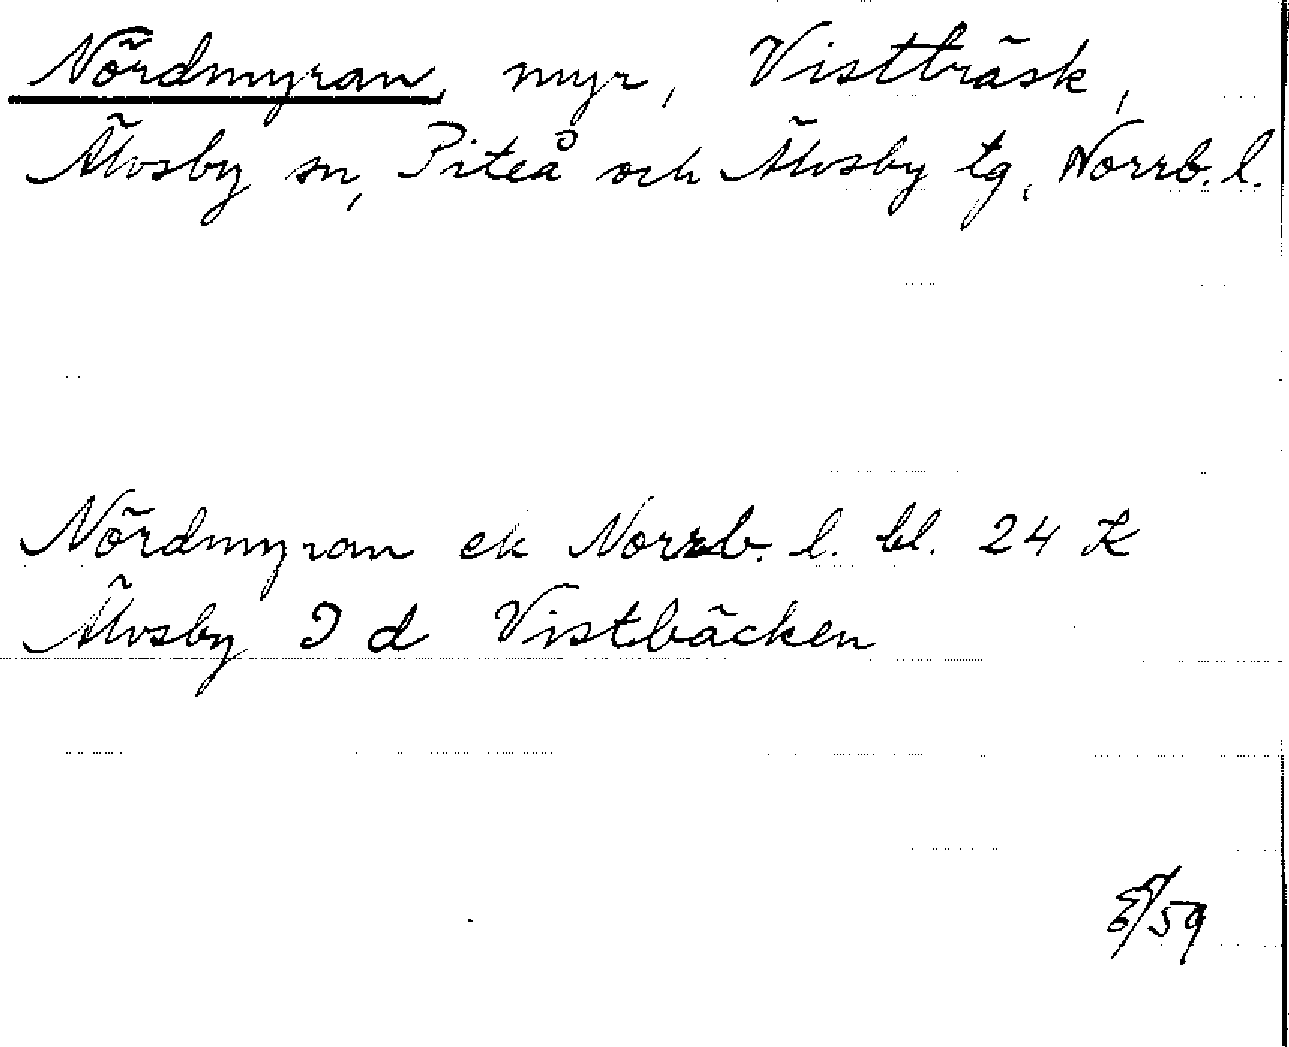 Nördmyran, myr, Vistträsk,
Älvsby sn, Piteå och Älvsby tg, Norrb. l.
Nördmyran ek Norrb. l. bl. 24 K
Älvsby I d Vistbäcken